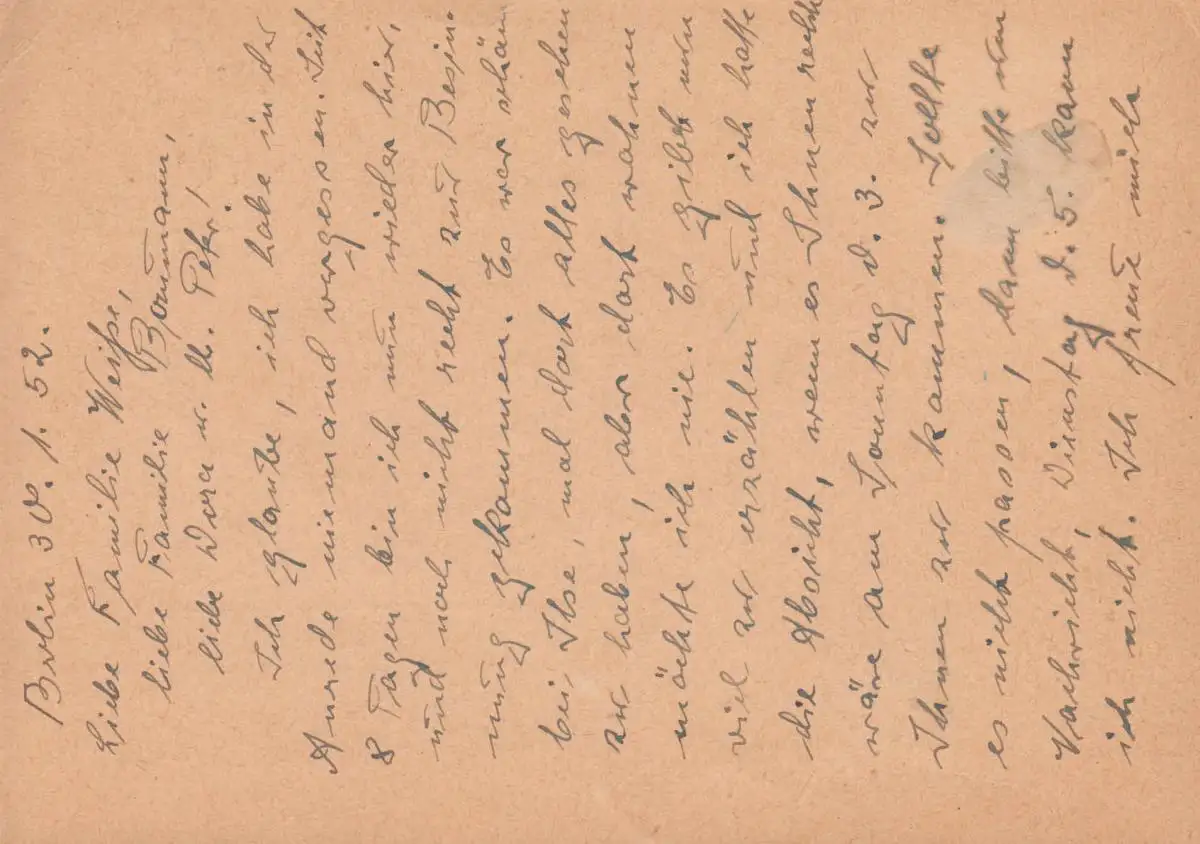 Berlin 30. 1. 52.
Liebe Familie Weiße,
liebe Familie Baumann,
liebe Dora u. M. Peter!
Ich glaube, ich habe in der
Anrede niemand vergessen. Seit
8 Tagen bin ich nun wieder hier,
und noch nicht recht zur Besin-
nung gekommen. Es war schön
bei Ilse, mal dort alles gesehen
zu haben, aber dort wohnen
möchte ich nie. Es gibt nun
viel zu erzählen und ich hatte
die Absicht, wenn es Ihnen recht
wäre am Sonntag d. 3. zu
Ihnen zu kommen. Sollte
es nicht passen, dann bitte um
Nachricht, Dienstag d. 5. kann
ich nicht. Ich freue mich